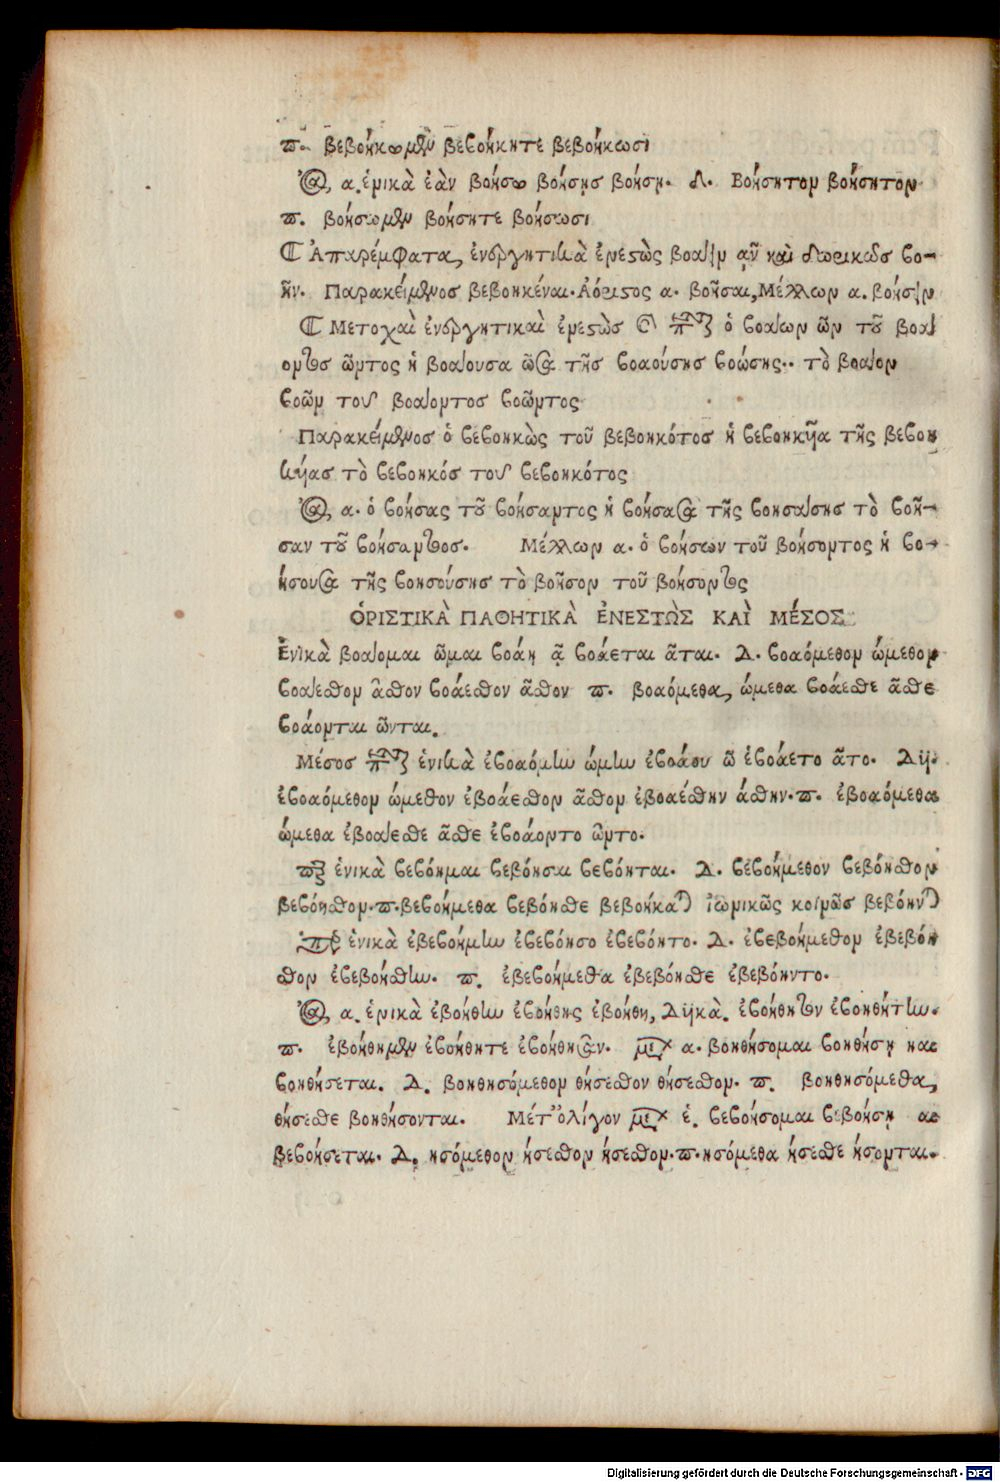 π. βεβοήκωμεν βεβοήκητε βεβοήκωσι
α. ἑνικὰ ἐὰν βοήσω βοήσῃς βοήσῃ. Δ. βοήσητον βοήσητον
π. βοήσωμεν βοήσητε βοήσωσι
Ἀπαρέμφατα, ἐνεργητικὰ ἐνεστὼς βοάειν ᾷν καὶ δωρικῶς βο-
ῆν. Παρακείμενος βεβοηκέναι. Ἀόριστος α. βοῆσαι, Μέλλων α. βοήσειν
Μετοχαὶ ἐνεργητικαὶ ἐνεστὼς ὁ βοάων ῶν τοῦ βοά
οντος ῶντος ἡ βοάουσα ῶσα τῆς βοαούσης βοώσης. τὸ βοάον
βοῶν τοῦ βοάοντος βοῶντος
Παρακείμενος ὁ βεβοηκὼς τοῦ βεβοηκότος ἡ βεβοηκῆα τῆς βεβοη
κήας τὸ βεβοηκός τοῦ βεβοηκότος
α. ὁ βοήσας τοῦ βοήσαντος ἡ βοήσασα τῆς βοησάσης τὸ βοῆ-
σαν τοῦ βοήσαντος. Μέλλων α. ὁ βοήσων τοῦ βοήσοντος ἡ βο-
ήσουσα τῆς βοησούσης τὸ βοῆσον τοῦ βοήσοντος
ὉΡΙΣΤΙΚᾺ ΠΑΘΗΤΙΚᾺ ἘΝΕΣΤῺΣ ΚΑῚ ΜΈΣΟΣ
Ἑνικὰ βοάομαι ῶμαι βοάῃ ᾷ βοάεται ᾶται. Δ. βοαόμεθον ώμεθον
βοάεσθον ᾶσθον βοάεσθον ᾶσθον π. βοαόμεθα, ώμεθα βοάεσθε ᾶσθε
βοάονται ῶνται.
Μέσος ἑνικὰ ἐβοαόμην ώμην ἐβοάου ῶ ἐβοάετο ᾶτο. Δϋ.
ἐβοαόμεθον ώμεθον ἐβοάεσθον ᾶσθον ἐβοαέσθην άσθην. π. ἐβοαόμεθα
ώμεθα ἐβοάεσθε ᾶσθε ἐβοάοντο ῶντο.
ἑνικὰ βεβόημαι βεβόησαι βεβόηται. Δ. βεβοήμεθον βεβόησθον
βεβόησθον. π. βεβοήμεθα βεβόησθε βεβοήκαται ἰωνικῶς κοινῶς βεβόηνται
ἑνικὰ ἐβεβοήμην ἐβεβόησο ἐβεβόητο. Δ. ἐβεβοήμεθον ἐβεβόη
σθον ἐβεβοήσθην. π. ἐβεβοήμεθα ἐβεβόησθε ἐβεβόηντο.
α. ἑνικὰ ἐβοήθην ἐβοήθης ἐβοήθη, Δϋκὰ. ἐβοήθητον ἐβοηθήτην.
π. ἐβοήθημεν ἐβοήθητε ἐβοήθησαν. α. βοηθήσομαι βοηθήσῃ και
βοηθήσεται. Δ. βοηθησόμεθον θήσεσθον θήσεσθον. π. βοηθησόμεθα,
θήσεσθε βοηθήσονται. Μέτ᾽ὀλίγον ἑ. βεβοήσομαι βεβοήσῃ
βεβοήσεται. Δ. ησόμεθον ήσεσθον ήσεσθον. π. ησόμεθα ήσεσθε ήσονται.
Digitalisierung gefördert durch die Deutsche Forschungsgemeinschaft - DFG